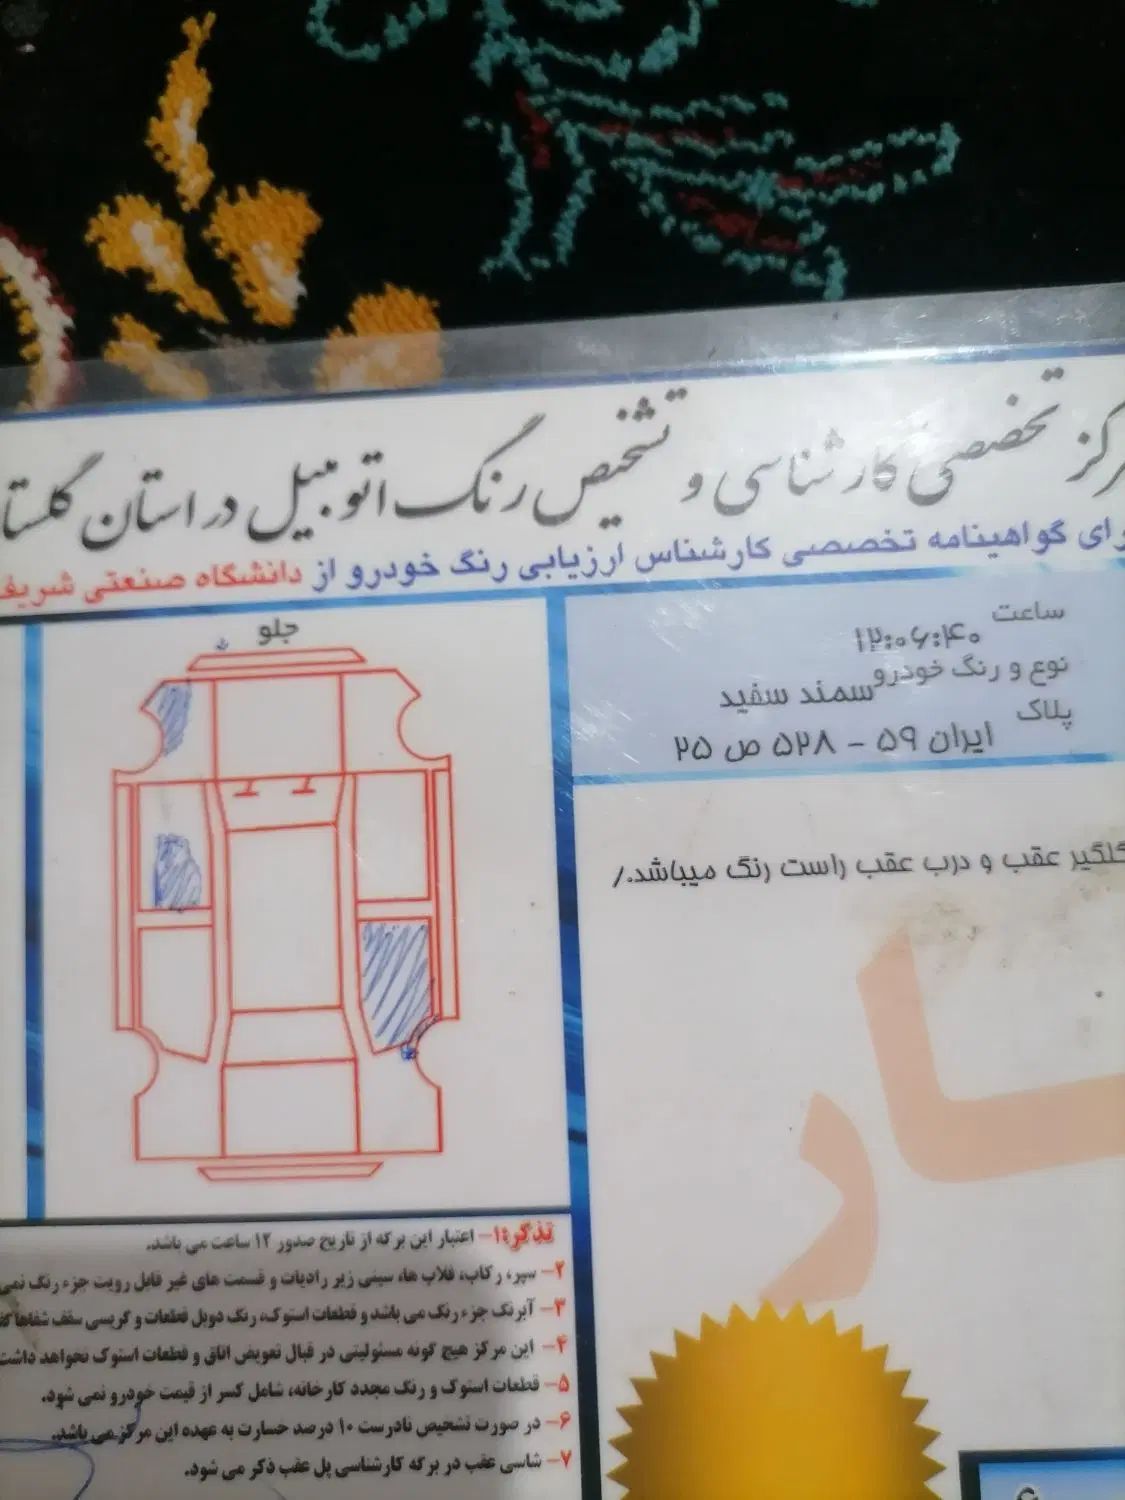 تخصصی کارشناسی و تشخیص رنگ اتومبیل در استان
گواهینامه تخصصی کارشناس ارزیابی رنگ خودرو از دانشگاه صنعتی شریف
ساعت ۱۲:۰۶:۴۰
نوع و رنگ خودرو سمند سفید
پلاک ایران ۵۹ - ۵۲۸ ص ۲۵
گلگیر عقب و درب عقب راست رنگ میباشد./
جلو
تذکر:۱- اعتبار این برگه از تاریخ صدور ۱۲ ساعت می باشد.
۲- سپر، رکاب، قلاب ها، سینی زیر رادیات و قسمت های غیر قابل رویت جزء رنگ نمی
۳- آبرنگ جزء رنگ می باشد و قطعات استوک، رنگ دوبل قطعات و گریسی سقف
۴- این مرکز هیچ گونه مسئولیتی در قبال تعویض اتاق و قطعات استوک نخواهد داشت
۵- قطعات استوک و رنگ مجدد کارخانه، شامل کسر از قیمت خودرو نمی شود.
۶- در صورت تشخیص نادرست ۱۰ درصد خسارت به عهده این مرکز می باشد.
۷- شاسی عقب در برگه کارشناسی پل عقب ذکر می شود.